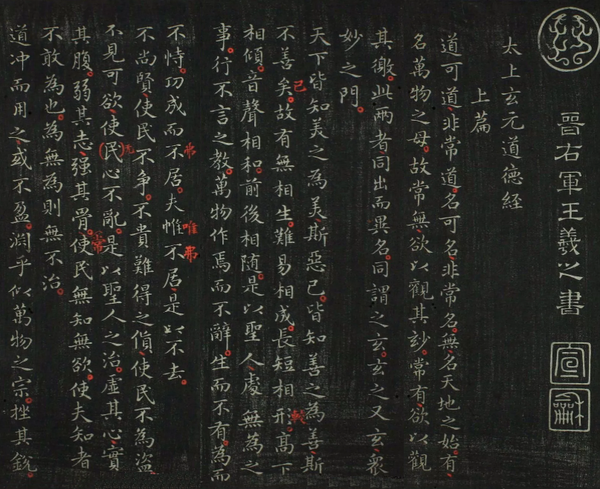 晉右軍王羲之書
宣
龢
太上玄元道德經
上篇
道可道非常道名可名非常名無名天地之始有
名萬物之母故常無欲以觀其玅常有欲以觀
其徼此兩者同出而異名同謂之玄玄之又玄衆
妙之門
天下皆知美之為美斯惡已皆知善之為善斯
已
不善矣故有無相生難易相成長短相形高下
相傾音聲相和前後相隨是以聖人處無為之
事行不言之教萬物作焉而不辭生而不有為而
不恃功成而不居夫惟不居是以不去
弗
唯弗
不尚賢使民不爭不貴難得之貨使民不為盜
不見可欲使(民)心不亂是以聖人之治虛其心實
其腹弱其志強其骨使民無知無欲使夫知者
常
不敢為也為無為則無不治
道冲而用之或不盈淵乎似萬物之宗挫其銳